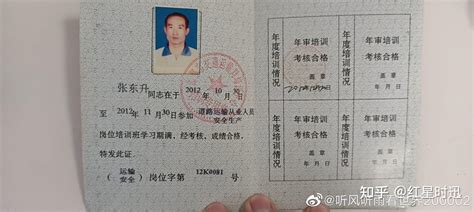 张东升 同志在于 2012 年 10 月 30
至 2012 年 11 月 30 日参加 道路运输从业人员
安全生产
岗位培训班学习期满,经考核、成绩合格,
特发此证。
(运输安全) 岗位字第 12K0081 号
年度培训情况
年审培训
考核合格
盖章
年度培训情况
年审培训
考核合格
盖章
年 月 日
年度培训情况
年审培训
考核合格
盖章
年 月 日
年度培训情况
年审培训
考核合格
盖章
年 月 日
知乎 @红星时讯
@听风听雨看世界200002